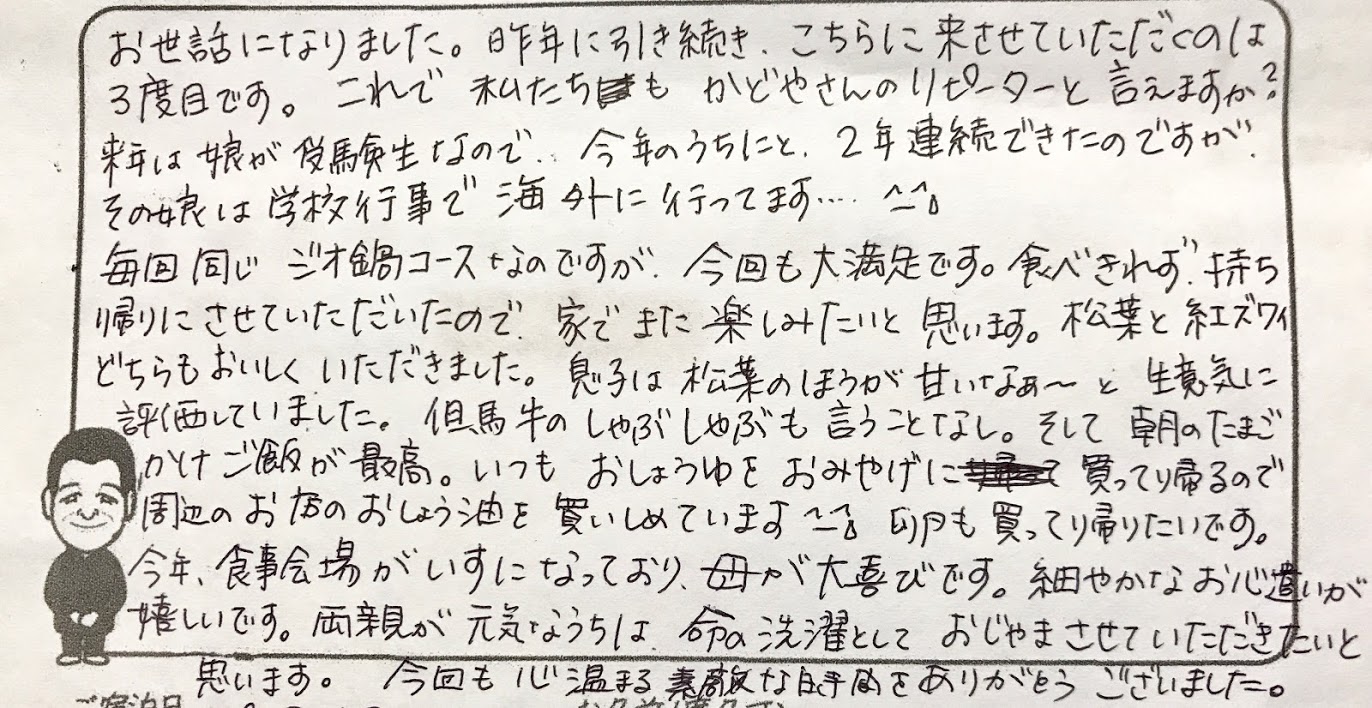 お世話になりました。昨年に引き続き、こちらに来させていただくのは
3度目です。これで私たちも かどやさんのリピーターと言えますか?
来年は娘が受験生なので、今年のうちにと、2年連続できたのですが、
その娘は学校行事で海外に行ってます…. ^_^;
毎回同じ ジオ鍋コースなのですが、今回も大満足です。食べきれず、持ち
帰りにさせていただいたので、家でまた楽しみたいと思います。松葉と紅ズワイ
どちらもおいしくいただきました。息子は松葉のほうが甘いなぁ~と生意気に
評価していました。但馬牛のしゃぶしゃぶも言うことなし。そして朝のたまご
かけご飯が最高。いつもおしょうゆをおみやげに買ってり帰るので
周辺のお店のおしょう油を買いしめています^_^; 卵も買ってり帰りたいです。
今年、食事会場がいすになっており、母が大喜びです。細やかなお心遣いが
嬉しいです。両親が元気なうちは、命の洗濯としておじゃまさせていただきたいと
思います。 今回も心温まる素敵な時間をありがとうございました。
ご宿泊日